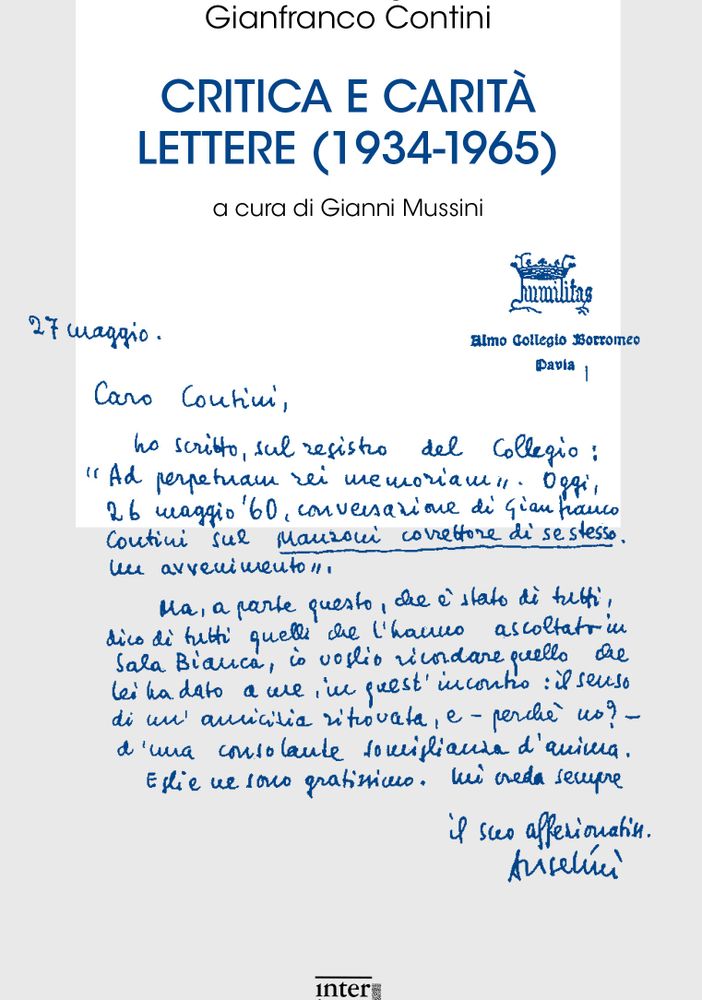 Gianfranco Contini
CRITICA E CARITÀ
LETTERE (1934-1965)
a cura di Gianni Mussini
humilitas
Almo Collegio Borromeo
Pavia
27 maggio.
Caro Contini,
ho scritto, sul registro del Collegio:
“Ad perpetuam rei memoriam”. Oggi,
26 maggio '60, conversazione di Gianfranco
Contini sul Manzoni correttore di se stesso.
Un avvenimento”.
Ma, a parte questo, che è stato di tutti,
dico di tutti quelli che l'hanno ascoltato in
Sala Bianca, io voglio ricordare quello che
lei ha dato a me, in quest'incontro: il senso
di un'amicizia ritrovata, e – perché no? –
d'una consolante somiglianza d'anima.
E gliene sono gratissimo. Mi creda sempre
il suo affezionatiss.
Anselmi
inter